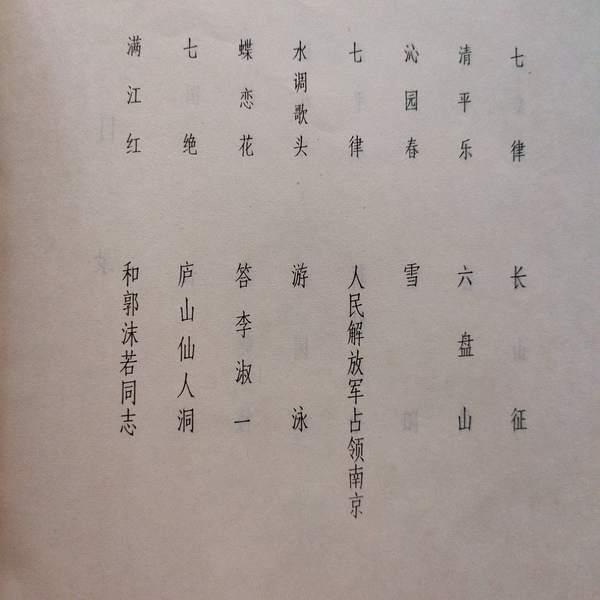 七律 长征
清平乐 六盘山
沁园春 雪
七律 人民解放军占领南京
水调歌头 游泳
蝶恋花 答李淑一
七绝 庐山仙人洞
满江红 和郭沫若同志